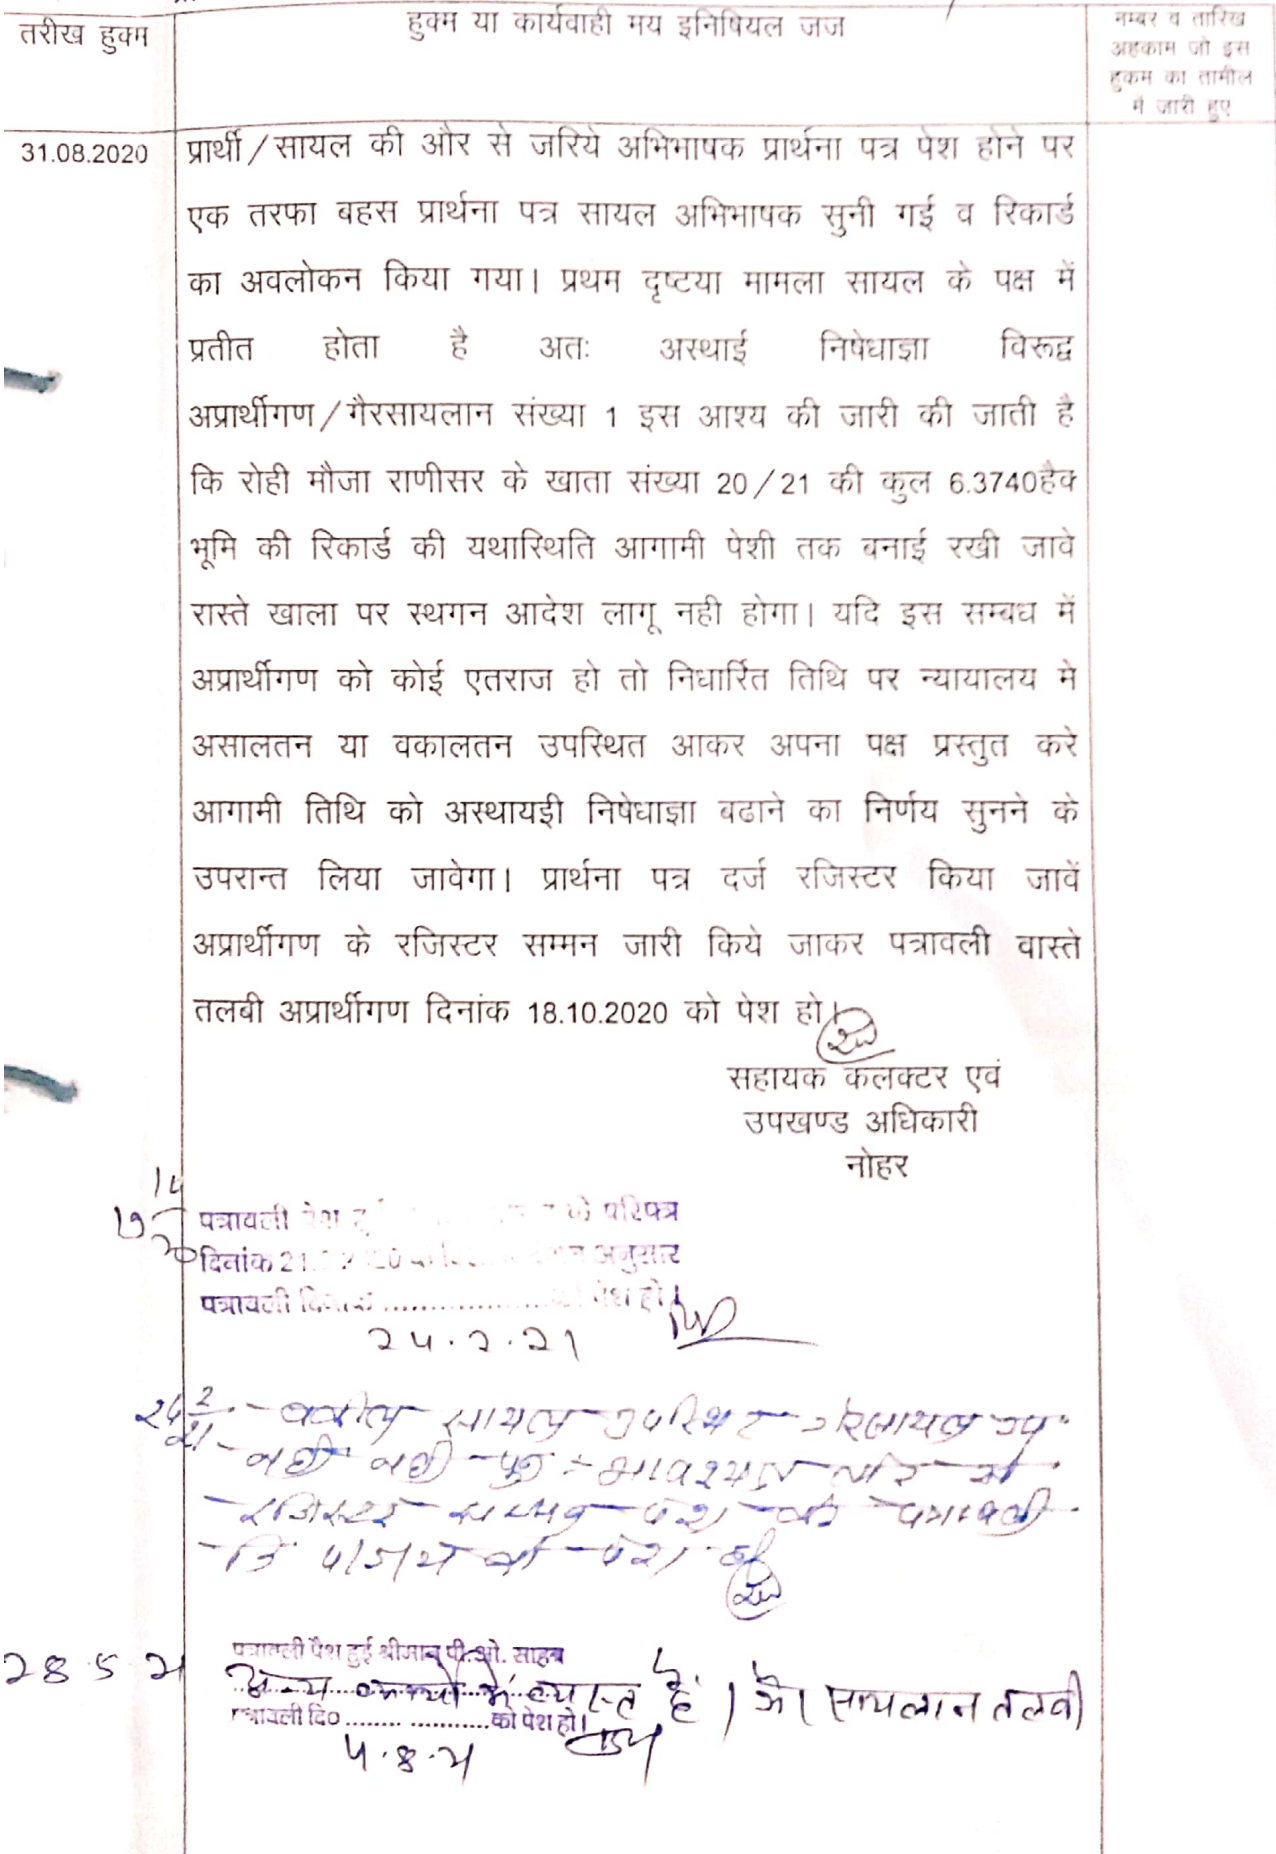 तरीख हुक्म
हुक्म या कार्यवाही मय इनिषियल जज
नम्बर व तारिख
अहकाम जो इस
हुकम का तामील
में जारी हुए
31.08.2020
प्रार्थी/सायल की और से जरिये अभिभाषक प्रार्थना पत्र पेश होने पर
एक तरफा बहस प्रार्थना पत्र सायल अभिभाषक सुनी गई व रिकार्ड
का अवलोकन किया गया। प्रथम दृष्टया मामला सायल के पक्ष में
प्रतीत होता है अतः अस्थाई निषेधाज्ञा विरूद्व
अप्रार्थीगण/गैरसायलान संख्या 1 इस आश्य की जारी की जाती है
कि रोही मौजा राणीसर के खाता संख्या 20/21 की कुल 6.3740हैक
भूमि की रिकार्ड की यथास्थिति आगामी पेशी तक बनाई रखी जावे
रास्ते खाला पर स्थगन आदेश लागू नही होगा। यदि इस सम्बध में
अप्रार्थीगण को कोई एतराज हो तो निधार्रित तिथि पर न्यायालय मे
असालतन या वकालतन उपस्थित आकर अपना पक्ष प्रस्तुत करे
आगामी तिथि को अस्थायइी निषेधाज्ञा बढाने का निर्णय सुनने के
उपरान्त लिया जावेगा। प्रार्थना पत्र दर्ज रजिस्टर किया जावें
अप्रार्थीगण के रजिस्टर सम्मन जारी किये जाकर पत्रावली वास्ते
तलबी अप्रार्थीगण दिनांक 18.10.2020 को पेश हो।
सहायक कलक्टर एवं
उपखण्ड अधिकारी
नोहर
पत्रावली पेश परिपत्र
दिनांक अनुसार
पत्रावली दिनांक .................. को पेश हो।
24.2.21
वकील सायल उपस्थित गैरसायल उप
नही नही पुनः आवश्यक
रजिस्टर सम्मन पेश करे पत्रावली
को पेश हो
28.5.21
पत्रावली पेश हुई श्रीमान् पी.ओ. साहब
अन्य कार्यो में व्यस्त हैं। गैर सायलान तलबी
पत्रावली दि0 ................... को पेश हो।
4.8.21